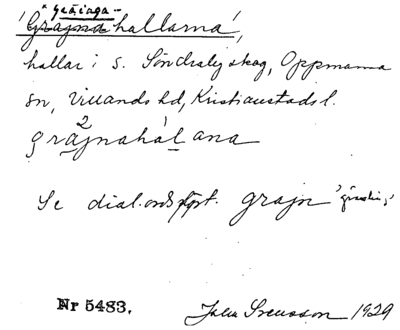 'Gräinga-
hallarna',
hallar i s. Söndraby skog, Oppmanna
sn, Villands hd, Kristianstads l.
gräjnahálana
Se dial.ords. grajn 'grind',
Nr 5483. Julia Svensson 1929